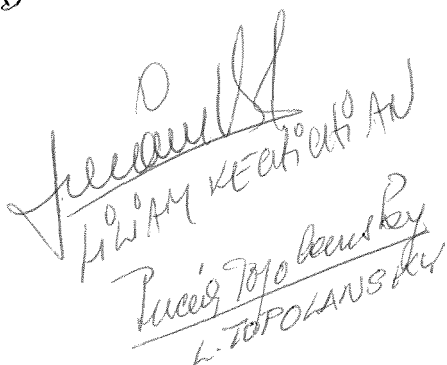 LiLiAM KECHiCHiAN
Lucía Topolansky
L. TOPOLANSKY